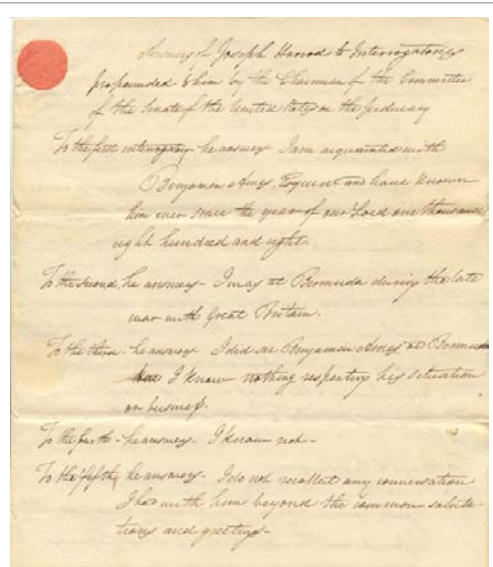 Answers of Joseph Harrod to Interrogatories
propounded to him by the Chairman of the Committee
of the Senate of the United States on the Judiciary
To the first interrogatory he answers I am acquainted with
Benjamin Ames, Esquire and have known
him ever since the year of our Lord one thousand
eight hundred and eight.
To the second, he answers - I was at Bermuda during the late
war with Great Britain.
To the third - he answers I did see Benjamin Ames at Bermuda
but I know nothing respecting his situation
or business.
To the fourth - he answers I know not -
To the fifth, he answers - I do not recollect any conversation
I had with him beyond the common saluta-
tions and greetings -